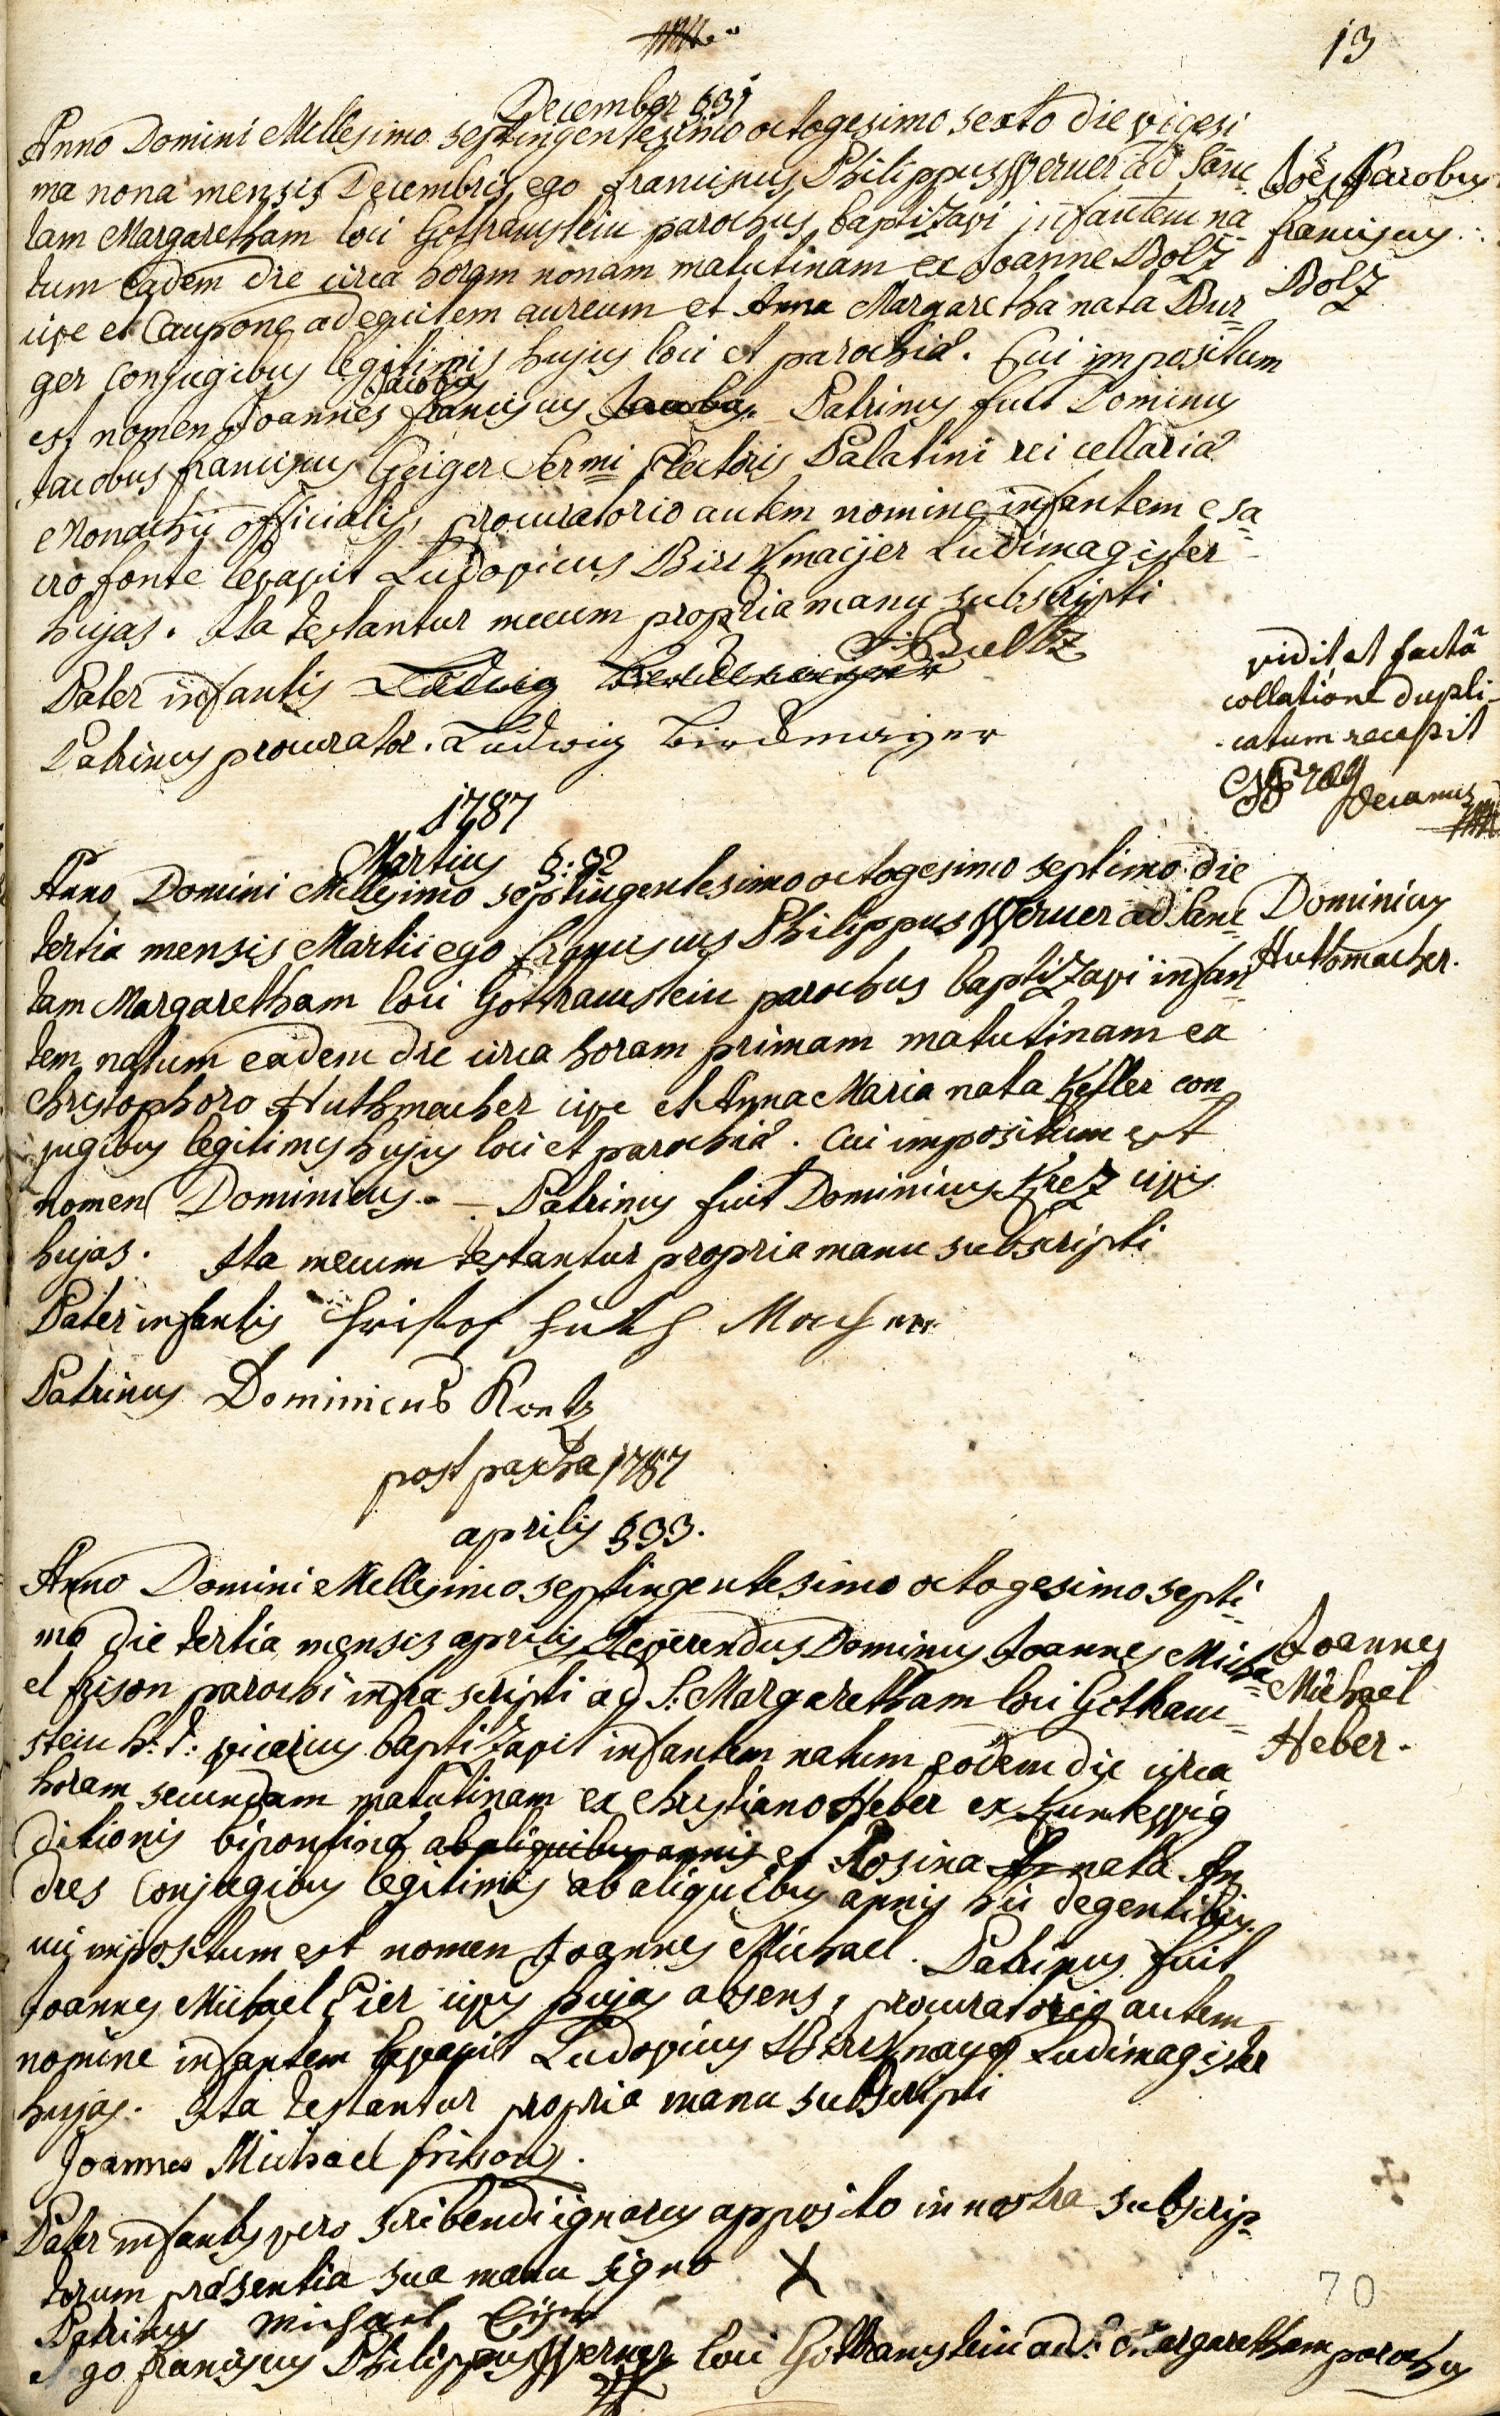 13
December § 31
Anno Domini Millesimo septingentesimo octogesimo sexto die vigesi
ma nona mensis Decembris ego franciscus Philippus Werner ad Sanc
Joēs Jacobus
tam Margaretham loci Gottramstein parochus baptizavi infantem na
franciscus
tum eadem die circa horam nonam matutinam ex Joanne Bolz
Bolz
cive et Caupone ad equitem aureum et Anna Margaretha nata Bur
ger Conjugibus legitimis hujus loci et parochiæ. Cui impositum
Jacobus
est nomen Joannes franciscus Jacobus. Patrinus fuit Dominus
Jacobus franciscus Geiger Sermi Electoris Palatini rei cellariæ
Monachii officialis, procuratorio autem nomine infantem e sa
cro fonte levavit Ludovicus Birckmaijer Ludimagister
hujas. Ita testantur mecum propria manu subscripti
Pater infantis Ludwig Birckmayer Bultz
Patrinus procurator. Ludwig Birckmayer
vidit et factâ
collatione dupli-
catum recepit
decanus
1787
Martius §. 32
Anno Domini Millesimo septingentesimo octogesimo septimo die
tertia mensis Martii ego franciscus Philippus Werner ad Sanc
Dominicus
tam Margaretham loci Gottramstein parochus baptizavi infan
Huthmacher.
tem natum eadem die circa horam primam matutinam ex
Christophoro Huthmacher cive et Anna Maria nata Keller con
jugibus legitimis hujus loci et parochiæ. Cui impositum est
nomen Dominicus. Patrinus fuit Dominicus Krez civis
hujas. Ita mecum testantur propria manu subscripti
Pater infantis Christof Huth Macher
Patrinus Dominicus
post pascha 1787
aprilis § 33.
Anno Domini Millesimo septingentesimo octogesimo septi
mo die tertia mensis aprilis Reverendus Dominus Joannes Micha
Joannes
el frison parochi infra scripti ad S. Margaretham loci Gotham
Michael
stein h. t. vicarius baptizavit infantem natum eodem die circa
Heber.
horam secundam matutinam ex Christiano Heber ex
ditionis bipontinæ ab aliquibus annis et Rosina nata An
dres Conjugibus legitimis ab aliquibus annis hic degentibus.
cui impositum est nomen Joannes Michael. Patrinus fuit
Joannes Michael Eier civis hujas absens, procuratorio autem
nomine infantem levavit Ludovicus Birckmayer Ludimagister
hujas. Ita testantur propria manu subscripti
Joannes Michael frison.
Pater infantis vero scribendi ignarus apposito in nostra subscrip
torum præsentia sua manu signo X
Patrinus Michael
Ego franciscus Philippus Werner loci Gottramstein ad S. Margaretham parochus
70